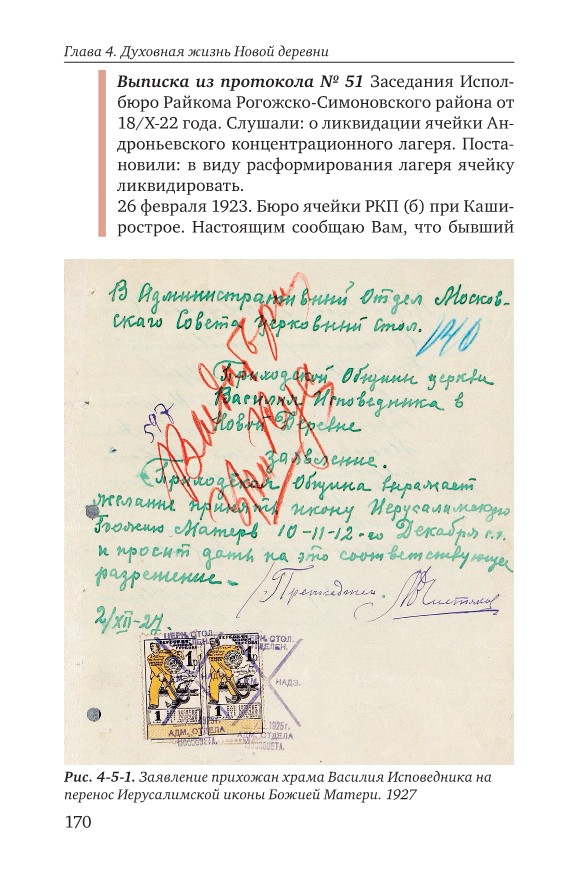 Глава 4. Духовная жизнь Новой деревни
Выписка из протокола № 51 Заседания Испол-
бюро Райкома Рогожско-Симоновского района от
18/X-22 года. Слушали: о ликвидации ячейки Ан-
дроньевского концентрационного лагеря. Поста-
новили: в виду расформирования лагеря ячейку
ликвидировать.
26 февраля 1923. Бюро ячейки РКП (б) при Каши-
рострое. Настоящим сообщаю Вам, что бывший
В Административный Отдел Москов-
скаго Совета церковный стол.
140
Приходской Общины церкви
Василия Исповедника в
Новой Деревне
597
Заявление.
Приходская Община выражает
желание принять икону Иерусалимскую
Божию Матерь 10-11-12-го Декабря с.г.
и просит дать на это соответствующее
разрешение.
2/XII-27.
ЦЕРК. СТОЛ.
1р
1р
НАДЗ.
1
1
1925г.
АДМ. ОТДЕЛА
МОССОВЕТА.
Рис. 4-5-1. Заявление прихожан храма Василия Исповедника на
перенос Иерусалимской иконы Божией Матери. 1927
170